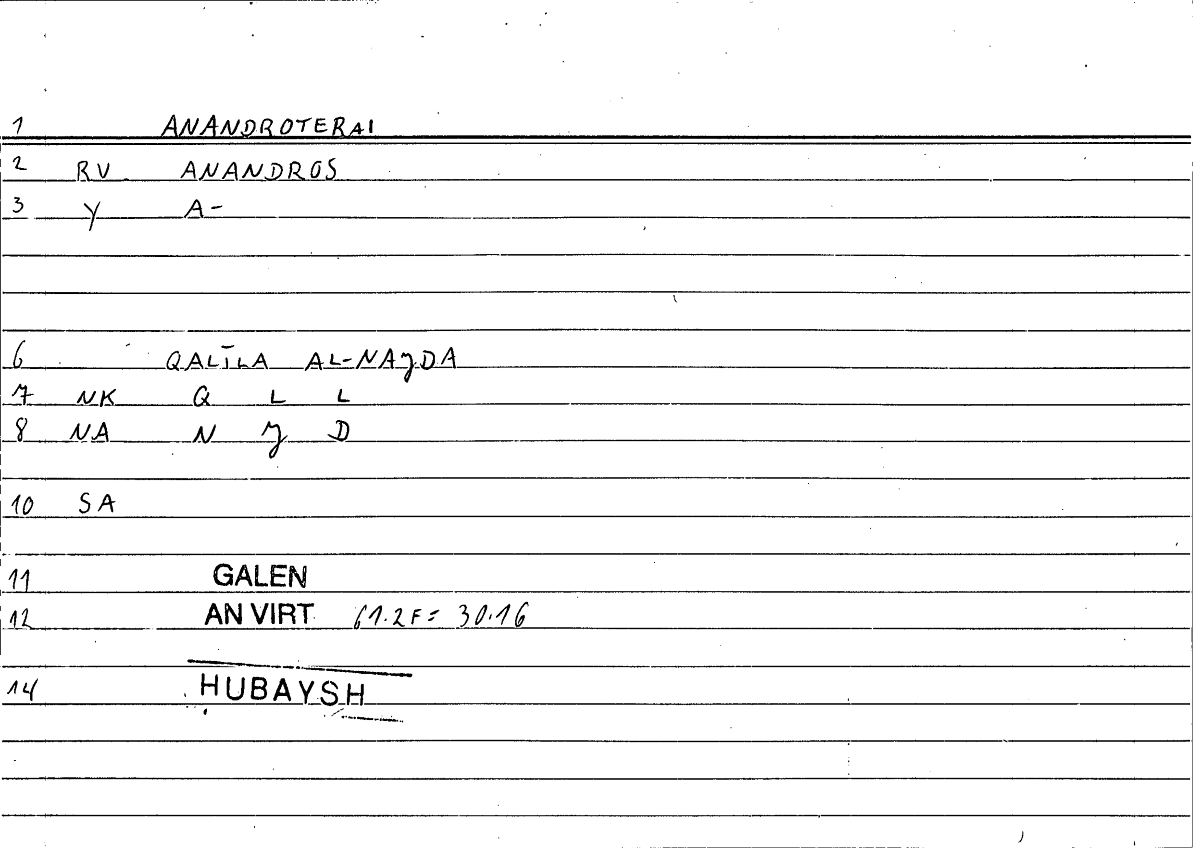 1 ANANDROTERAI
2 RV ANANDROS
3 Y A-
6 QALĪLA AL-NAJDA
7 NK Q L L
8 NA N J D
10 SA
11 GALEN
12 AN VIRT 61.2F = 30.16
14 HUBAYSH